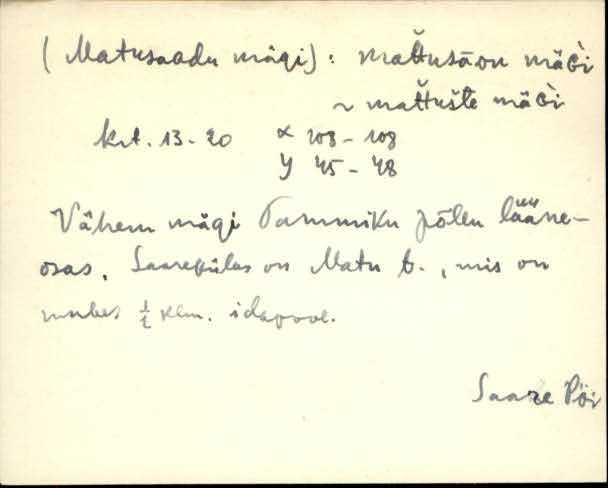 (Matusaadu mägi): mat̆t̆usāou mäG̀i
~ mat̆t̆ušte mäG̀i
krt. 13-20 x 103-108
y 45-48
Vähem mägi Tammiku põllu lääne-
osas. Saarekülas on Matu t., mis on
umbes ½ klm. idapool.
Saare Pöi